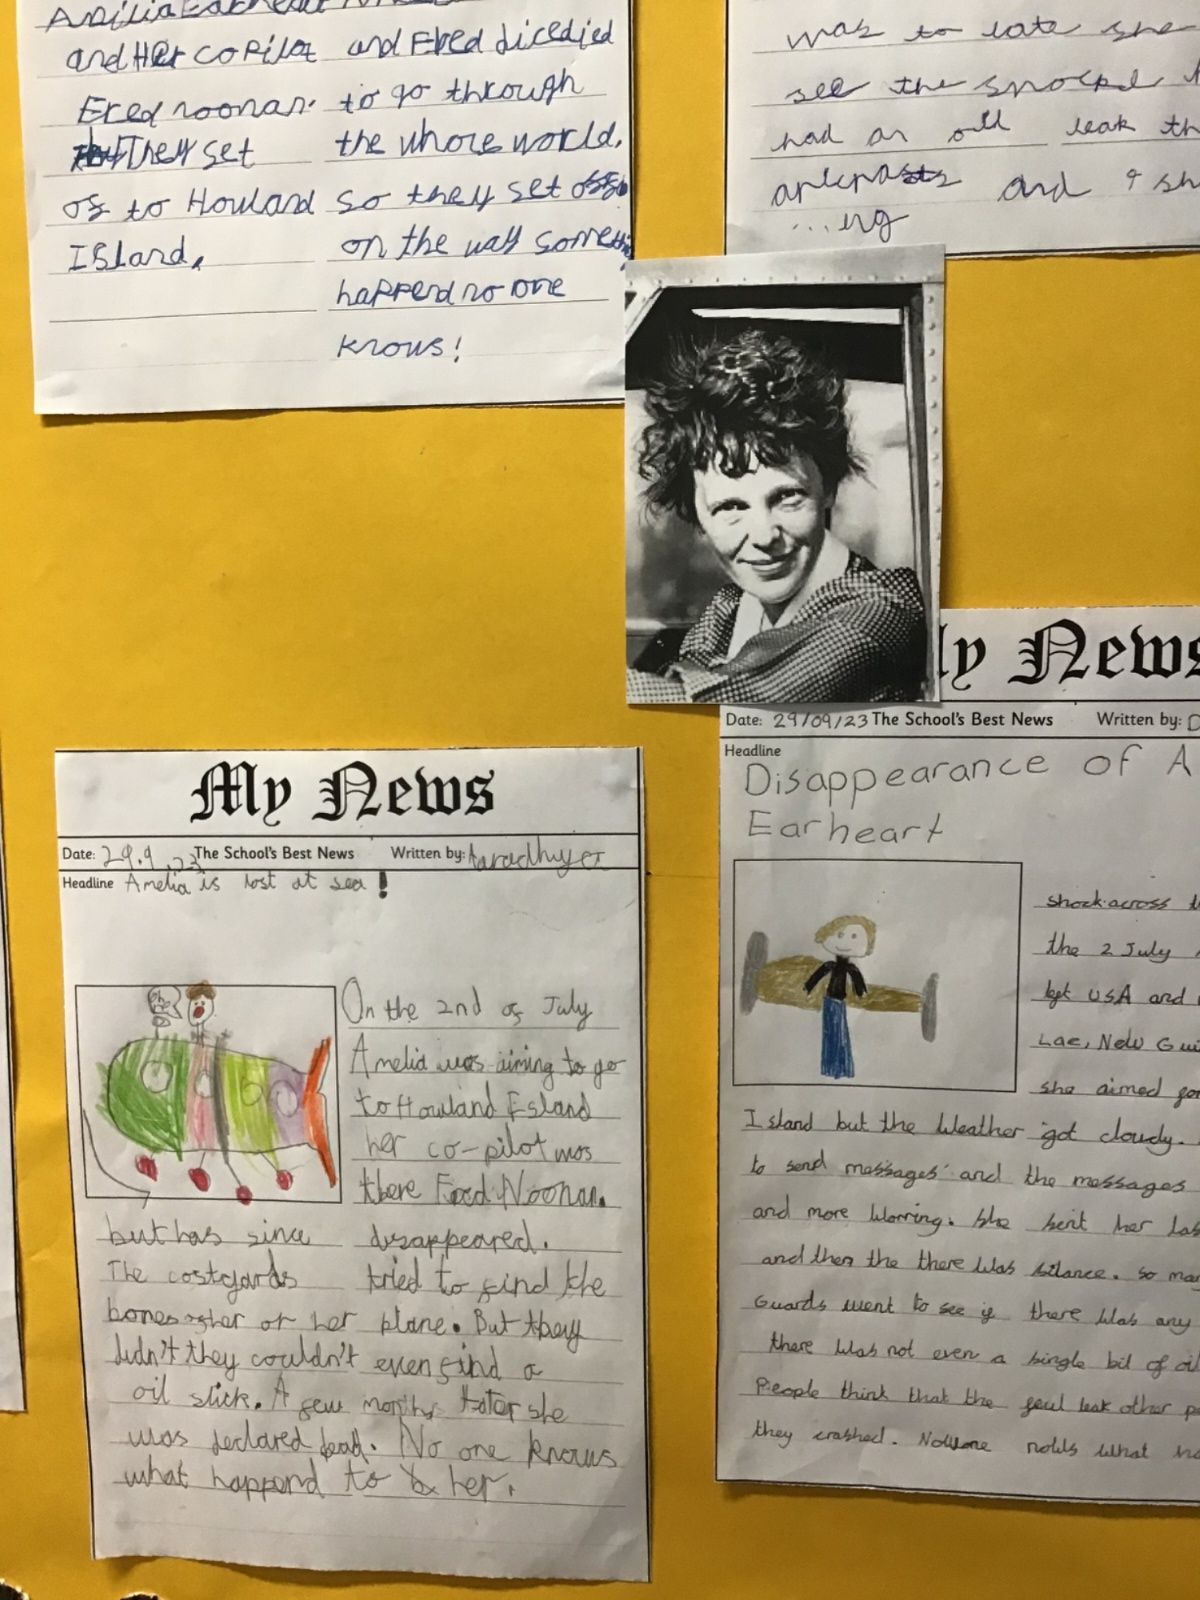 and Her coPilot and Fred dicedied
Fred noonan. to go through
They set the whore world.
of to Howland so they set off
ISland. on the way somethi
happend no one
knows!
was to late she
see the
had an oil leak th
and sh
My News
Date: 29.9.23 The School's Best News Written by:
Headline Amelia is lost at sea!
On the 2nd of July
Amelia was aiming to go
to Howland Esland
her co-pilot was
there Fred Noonan.
but has since disappeared.
The costgards tried to find the
bones of her or her plane. But they
didn't they couldn't even find a
oil slick. A few months later she
was declared dead. No one knows
what happend to her.
My News
Date: 29/09/23 The School's Best News Written by: D
Headline
Disappearance of A
Earheart
shock across t
the 2 July
left USA and
Lae, New Gui
she aimed goi
Island but the Weather got cloudy.
to send messages and the messages
and more Worring. She sent her las
and then the there Was silance. So man
Guards went to see if there Was any
there Was not even a single bit of oil
People think that the feul leak other pe
they crashed. what ha